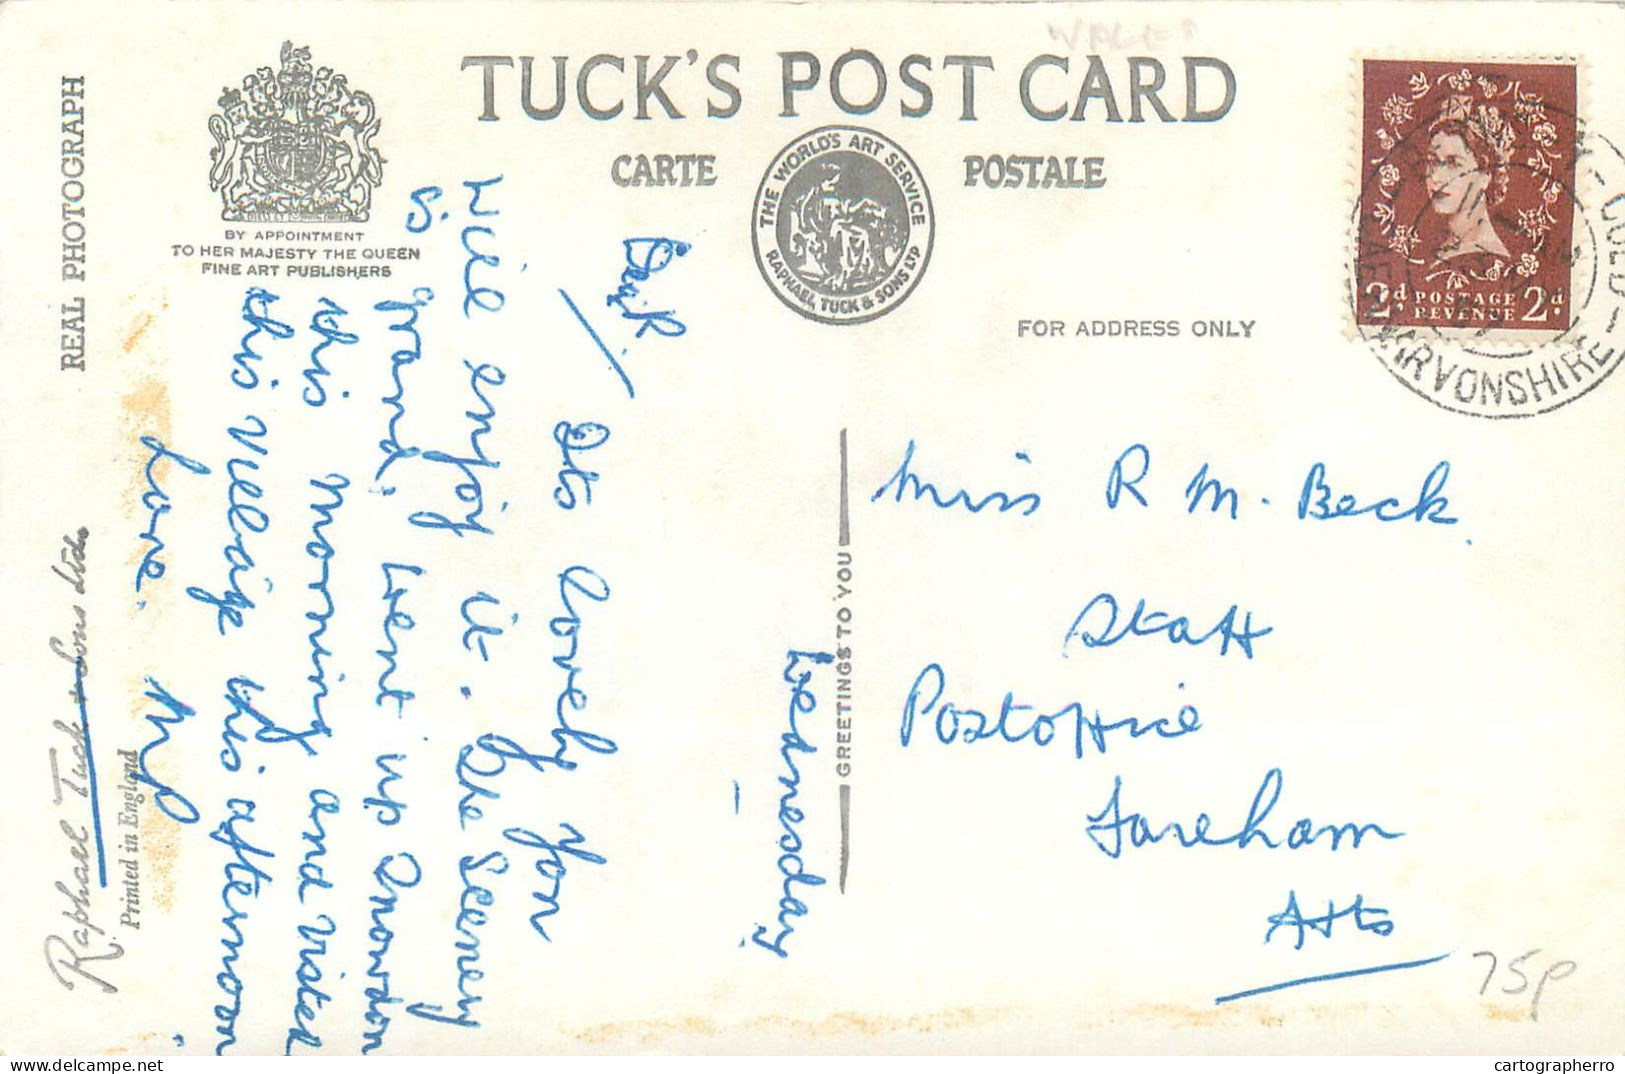 WALES
TUCK'S POST CARD
CARTE POSTALE
THE WORLD'S ART SERVICE
RAPHAEL TUCK & SONS LTD
BY APPOINTMENT
TO HER MAJESTY THE QUEEN
FINE ART PUBLISHERS
REAL PHOTOGRAPH
Raphael Tuck & Sons Ltd.
Printed in England
FOR ADDRESS ONLY
GREETINGS TO YOU
2d. POSTAGE REVENUE 2d.
CAERNARVONSHIRE
Wednesday
Its lovely you
will enjoy it. The Scenery
is grand, went up Snowdon
this morning and visited
this village this afternoon
Love.
Miss R M. Beck.
Staff
Postoffice
Fareham
Hts
75p
cartographerro